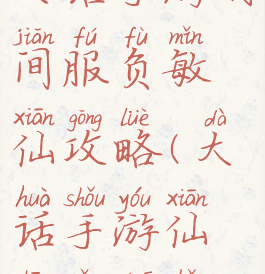 jiān fú fù mǐn
间服负敏
xiān gōng lüè dà
仙攻略(大
huà shǒu yóu xiān
话手游仙